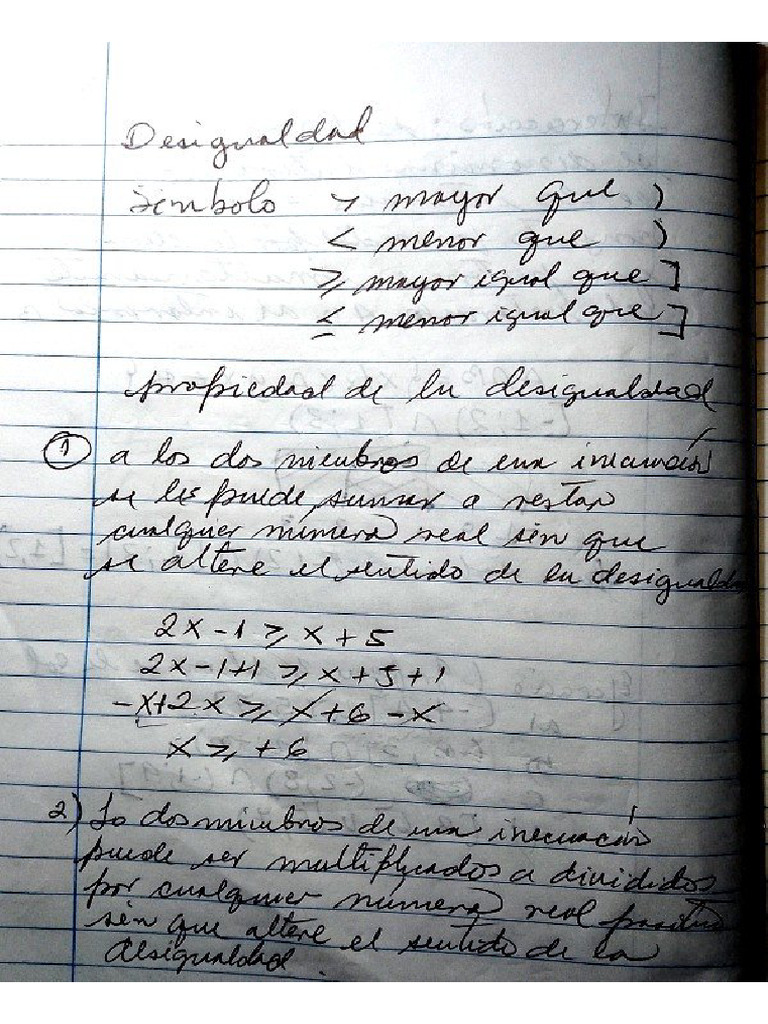 Desigualdad
Símbolo > mayor que )
< menor que )
≥ mayor igual que ]
≤ menor igual que ]
propiedad de la desigualdad
① a los dos miembros de una inecuación
se les puede sumar o restar
cualquier número real sin que
se altere el sentido de la desigualda
2x - 1 ≥ x + 5
2x - 1 + 1 ≥ x + 5 + 1
-x + 2x ≥ x + 6 - x
x ≥ + 6
2) Lo dos miembros de una inecuación
puede ser multiplicados o divididos
por cualquier número real positivo
sin que altere el sentido de la
desigualdad.